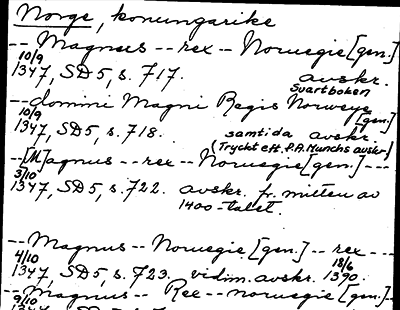 Norge, konungarike
-- Magnus -- rex -- Noruegie [gen.]
10/9
1347, SD5, s. 717. avskr.
Svartboken
-- domini Magni Regis Norweye
[gen]
10/9
1347, SD5, s. 718. samtida avskr.
(Tryckt eft. P.A. Munchs avskr.)
--[M]agnus -- rex -- Noruegie [gen.] ---
3/10
1347, SD5, s. 722. avskr. fr. mitten av
1400-talet.
-- Magnus -- Noruegie [gen.] -- rex ---
4/10 18/6
1347, SD5, s. 723. vidim. avskr. 1390.
-- Magnus -- Rex -- noruegie [gen.] --
9/10